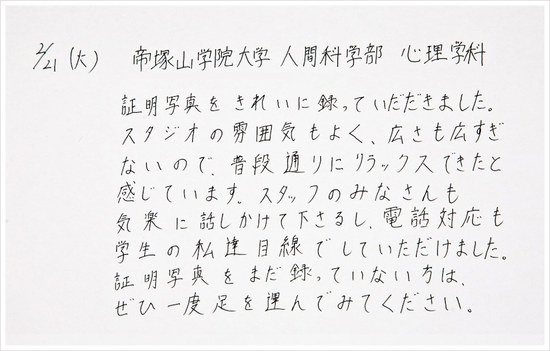 2/21 (火) 帝塚山学院大学 人間科学部 心理学科
証明写真をきれいに録っていだだきました。
スタジオの雰囲気もよく、広さも広すぎ
ないので、普段通りにリラックスできたと
感じています。スタッフのみなさんも
気楽に話しかけて下さるし、電話対応も
学生の私達目線でしていただけました。
証明写真をまだ録っていない方は、
ぜひ一度足を運んでみてください。